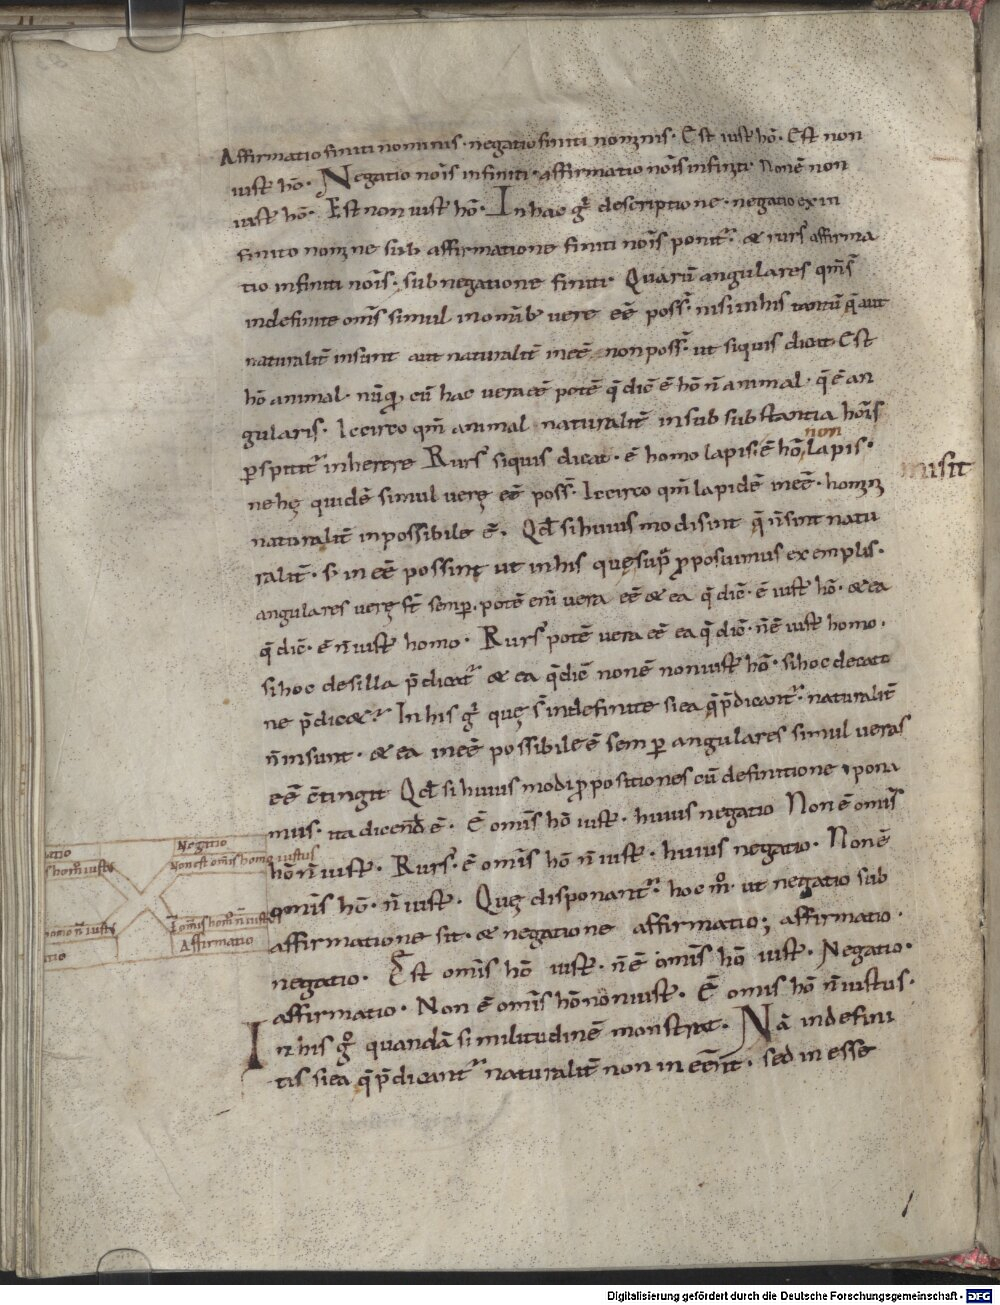 Affirmatio finiti nominis · negatio finiti nominis · Est iust̄ hō · Est non
iust̄ hō · Negatio nōīs infiniti · affirmatio nōīs infiniti · Non ē non
iust̄ hō · Est non iust̄ hō · In hac gͥ descriptione · negatio ex in
finito nomine sub affirmatione finiti nōīs ponit᷑ · & rurs᷒ affirma
tio infiniti nōīs · sub negatione finiti · Quarū angulares qm̄s᷒
indefinite om̄s simul in omīb᷒ vere eē poss᷒ · nisi in his tantū q̄ aut
naturalit̄ insunt aut naturalit̄ ineē non poss᷒ · ut siquis dicat · Est
hō animal · cū hac vera eē potē q̄ dic̄ ē hō n̄ animal · q̄ ē an
gularis · Iccirco qm̄ animal naturalit̄ in sub substantia hoīs
inherere Rurs᷒ siquis dicat · ē homo lapis · ē hō non lapis ·
ne hę quidē simul verę eē poss᷒ · Iccirco qm̄ lapidē ineē · homini
naturalit̄ inpossibile ē · Qd̄ si huius modi sint q̄ n̄ sint natu
ralit̄ · s; ineē possint ut in his quę sup̄ p̱posuimus exemplis ·
angulares verę st̄ semp̱ · potē eni vera eē & ea q̄ dic̄ · ē iust̄ hō · & ea
q̄ dic̄ · ē n̄ iust̄ homo · Rurs᷒ potē vera eē ea q̄ dic̄ · n̄ ē iust̄ homo ·
si hoc de silla p̄dicat᷑ & ea q̄ dic̄ non ē non iust̄ hō · si hoc de catt
ne p̄dicet᷑ · In his gͥ quę s᷒ indefinite si ea q̄ p̄dicant᷑ · naturalit̄
n̄ insunt · & ea ineē possibile ē semp̱ angulares simul veras
eē c̄tingit Qd̄ si huius modi p̱positiones cū definitione pona
mus · ita dicend̄ ē · Ē omīs hō iust̄ · huius negatio Non ē omīs
hō n̄ iust̄ · Rurs᷒ · ē omīs hō n̄ iust̄ · huius negatio · Non ē
omīs hō · n̄ iust̄ · Quę disponant᷑ · hoc mͦ · ut negatio sub
affirmatione sit · & negatione affirmatio ; affirmatio ·
negatio · Est omīs hō iust̄ · n̄ ē omīs hō iust̄ · Negatio ·
affirmatio · Non ē omīs hō non iust̄ · Ē omīs hō n̄ iustus ·
In his gͦ quandā similitudinē monstrat · Nā indefini
tis si ea q̄ p̄dicant᷑ naturalit̄ non in · sed in esse
misit
Negatio
Non est omīs homo iustus
Ē omīs homō n̄ iust᷒
Affirmatio